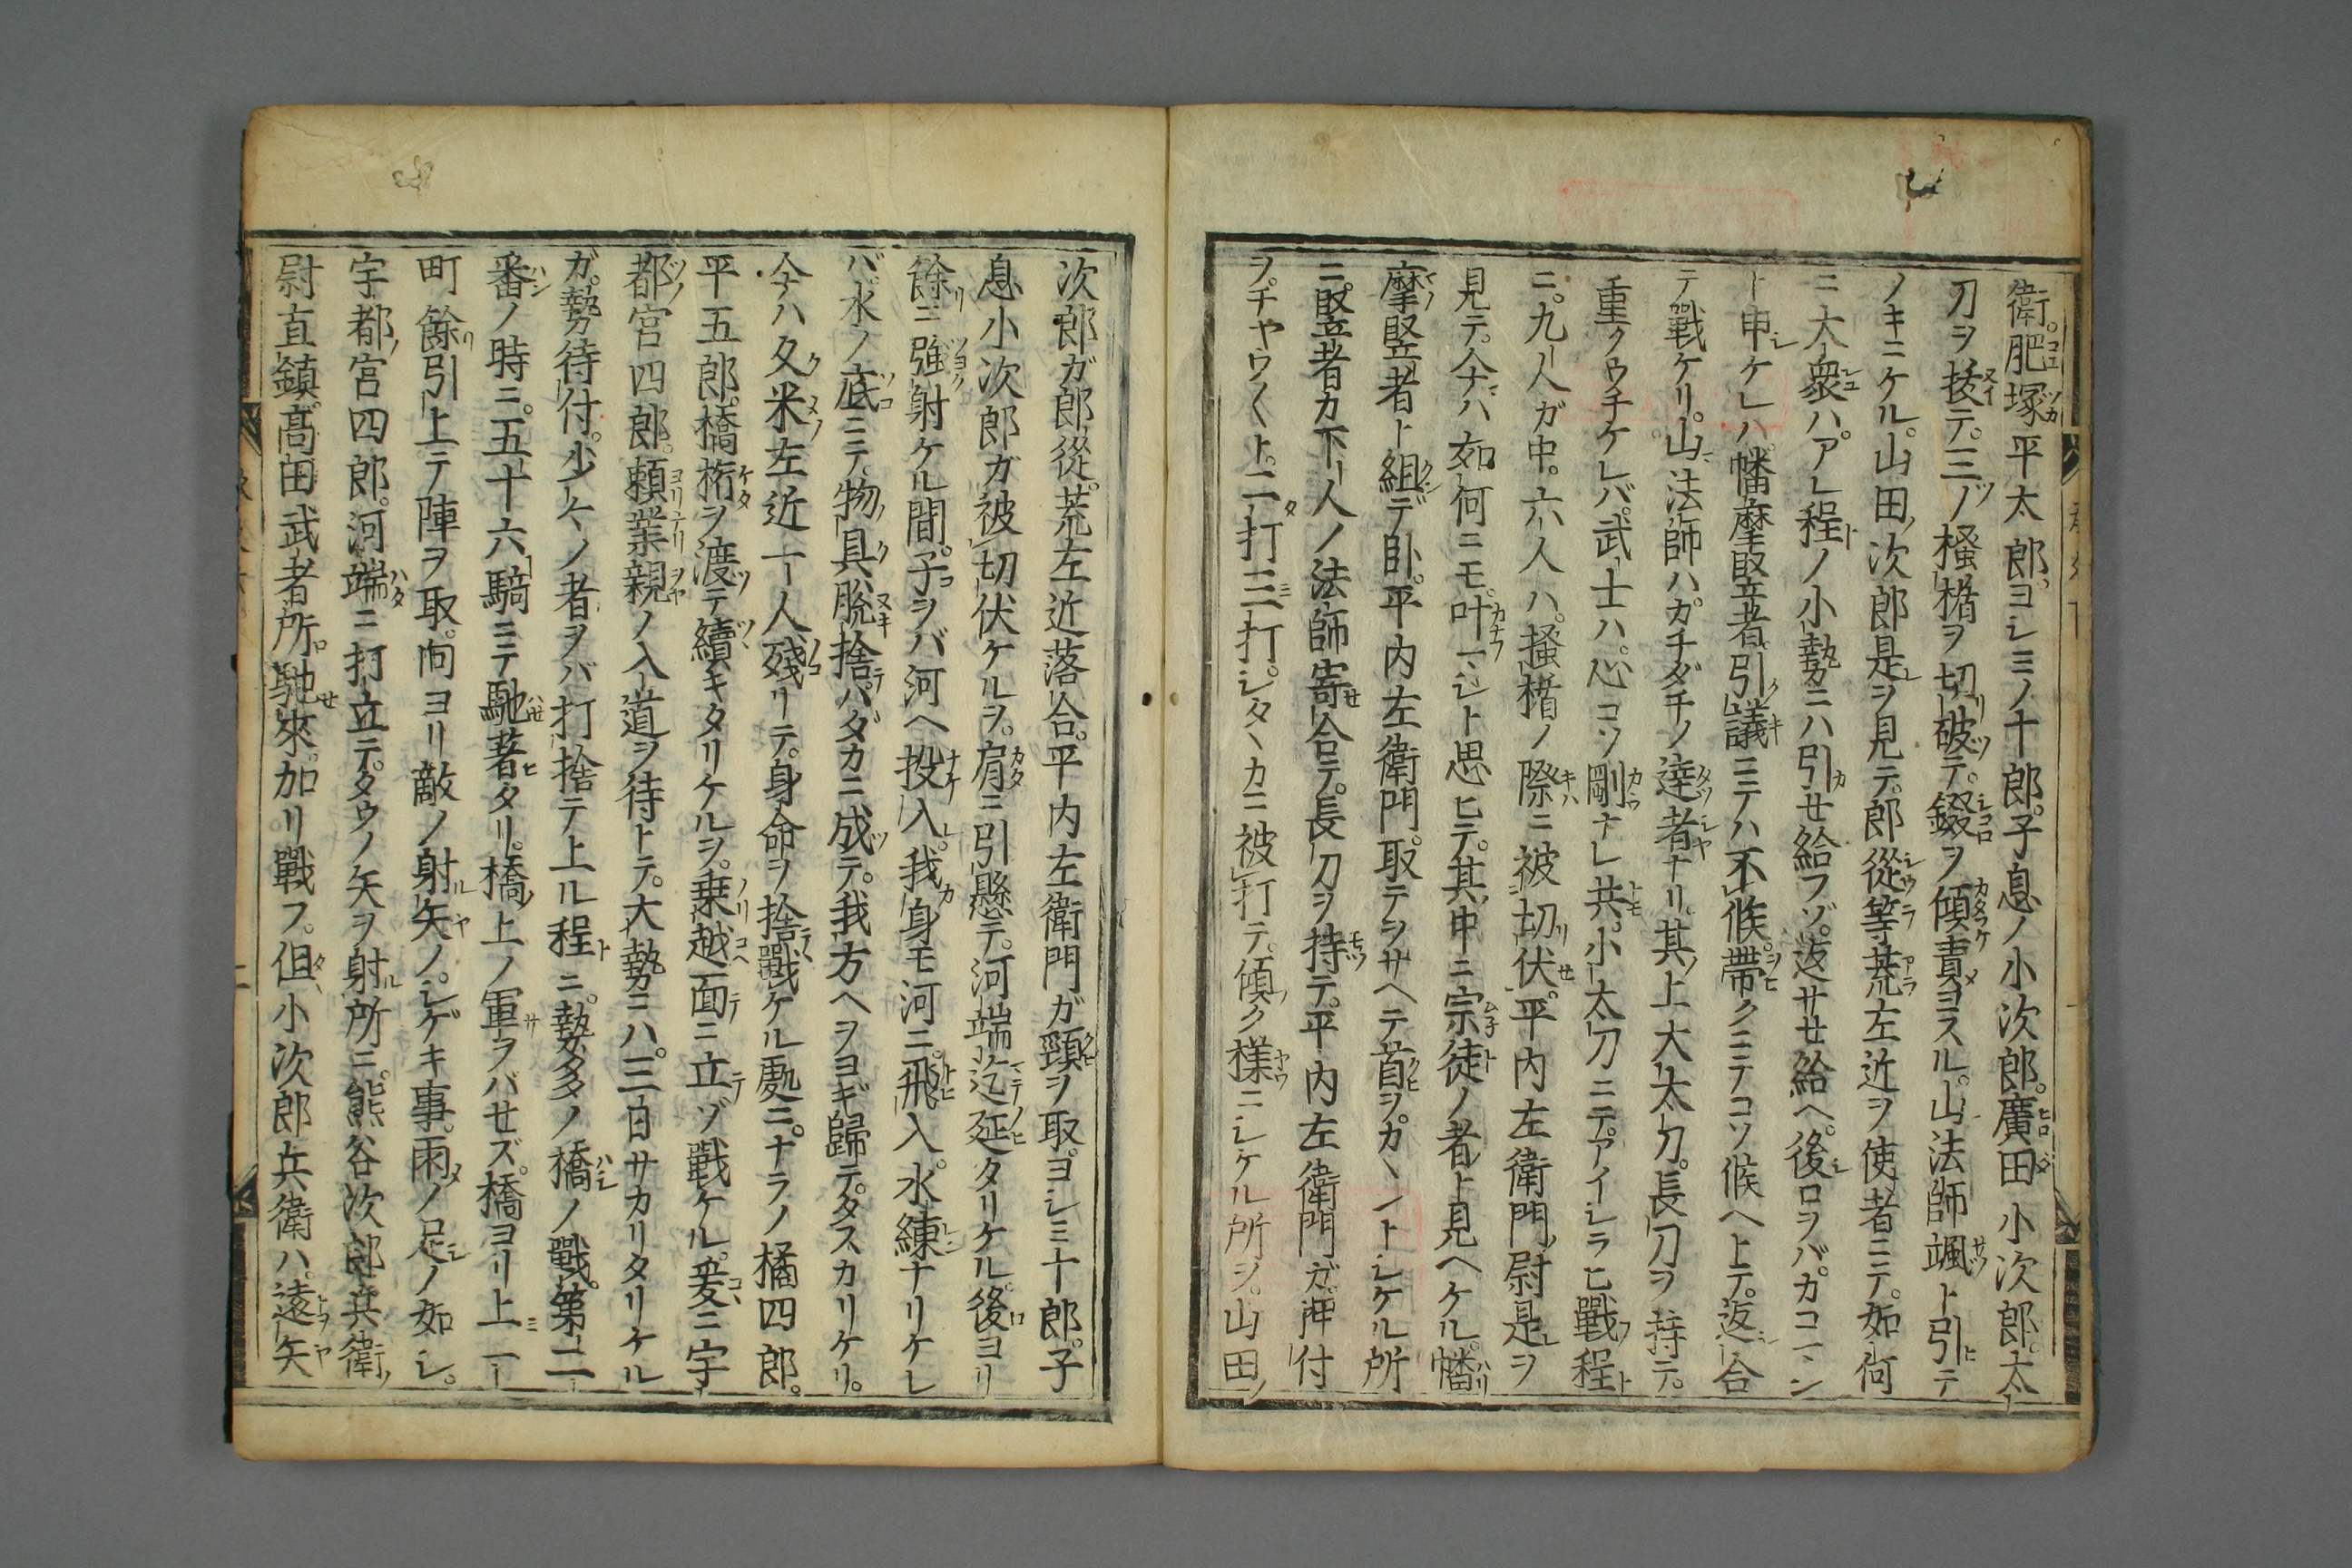 衛肥塚平太郎ヨシミノ十郎子息ノ小次郎廣田小次郎太
刀ヲ抜テ三ノ掻楯ヲ切破テ錣ヲ傾責ヨスル山法師颯ト引テ
ノキニケル山田次郎是ヲ見テ郎從等荒左近ヲ使者ニテ如何
ニ大衆ハアレ程ノ小勢ニハ引せ給フゾ返サせ給ヘ後ロヲバカコマン
ト申ケレハ幡摩竪者引議ニテハ不候帶クニテコソ候ヘ上テ返合
テ戰ケリ山法師ハカチダチノ達者ナリ其上大太刀長刀ヲ持テ
重クウチケレバ武士ハ心コソ剛ナレ共小太刀ニテアイシラヒ戰程
ニ九人ガ中六人ハ掻楯ノ際ニ被切伏平内左衛門尉是ヲ
見テ今ハ如何ニモ叶マシト思ヒテ其中ニ宗徒ノ者ト見ヘケル幡
摩竪者ト組デ臥平内左衛門取テヲサヘテ首ヲカヽントシケル所
ニ竪者カ下人ノ法師寄合テ長刀ヲ持テ平内左衛門ガ押付
ヲチヤウ〱ト二打三打シタヽカニ被打テ傾ク樣ニシケル所ヲ山田
次郎ガ郎從荒左近落合平内左衛門ガ頸ヲ取ヨシミ十郎子
息小次郎ガ被切伏ケルヲ肩ニ引懸テ河端迄延タリケル後ヨリ
餘ニ強射ケル間子ヲバ河ヘ投入我身モ河ニ飛入水練ナリケレ
バ水ノ底ニテ物具脱捨ハダカニ成テ我方ヘヲヨギ歸テタスカリケリ
今ハ久米左近一人殘リテ身命ヲ捨戰ケル處ニナラノ橘四郎
平五郎橋桁ヲ渡テ續キタリケルヲ乗越面ニ立テゾ戰ケル爰ニ宇
都宮四郎頼業親ノ入道ヲ待トテ大勢ニハ三日サカリタリケル
ガ勢待付少々ノ者ヲバ打捨テ上ル程ニ勢多ノ橋ノ戰第二
番ノ時ニ五十六騎ニテ馳著タリ橋上ノ軍ヲバせズ橋ヨリ上一
町餘引上テ陣ヲ取向ヨリ敵ノ射矢ノシゲキ事雨ノ足ノ如シ
宇都宮四郎河端ニ打立テタウノ矢ヲ射所ニ熊谷次郎兵衛
尉直鎮髙田武者所馳來加リ戰フ但小次郎兵衛ハ遠矢